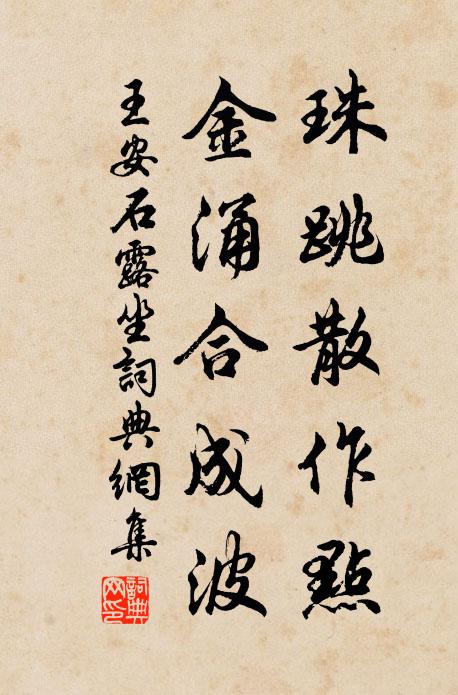 珠跳散作點
金涌合成波
王安石露坐詞典網集
詞典網印